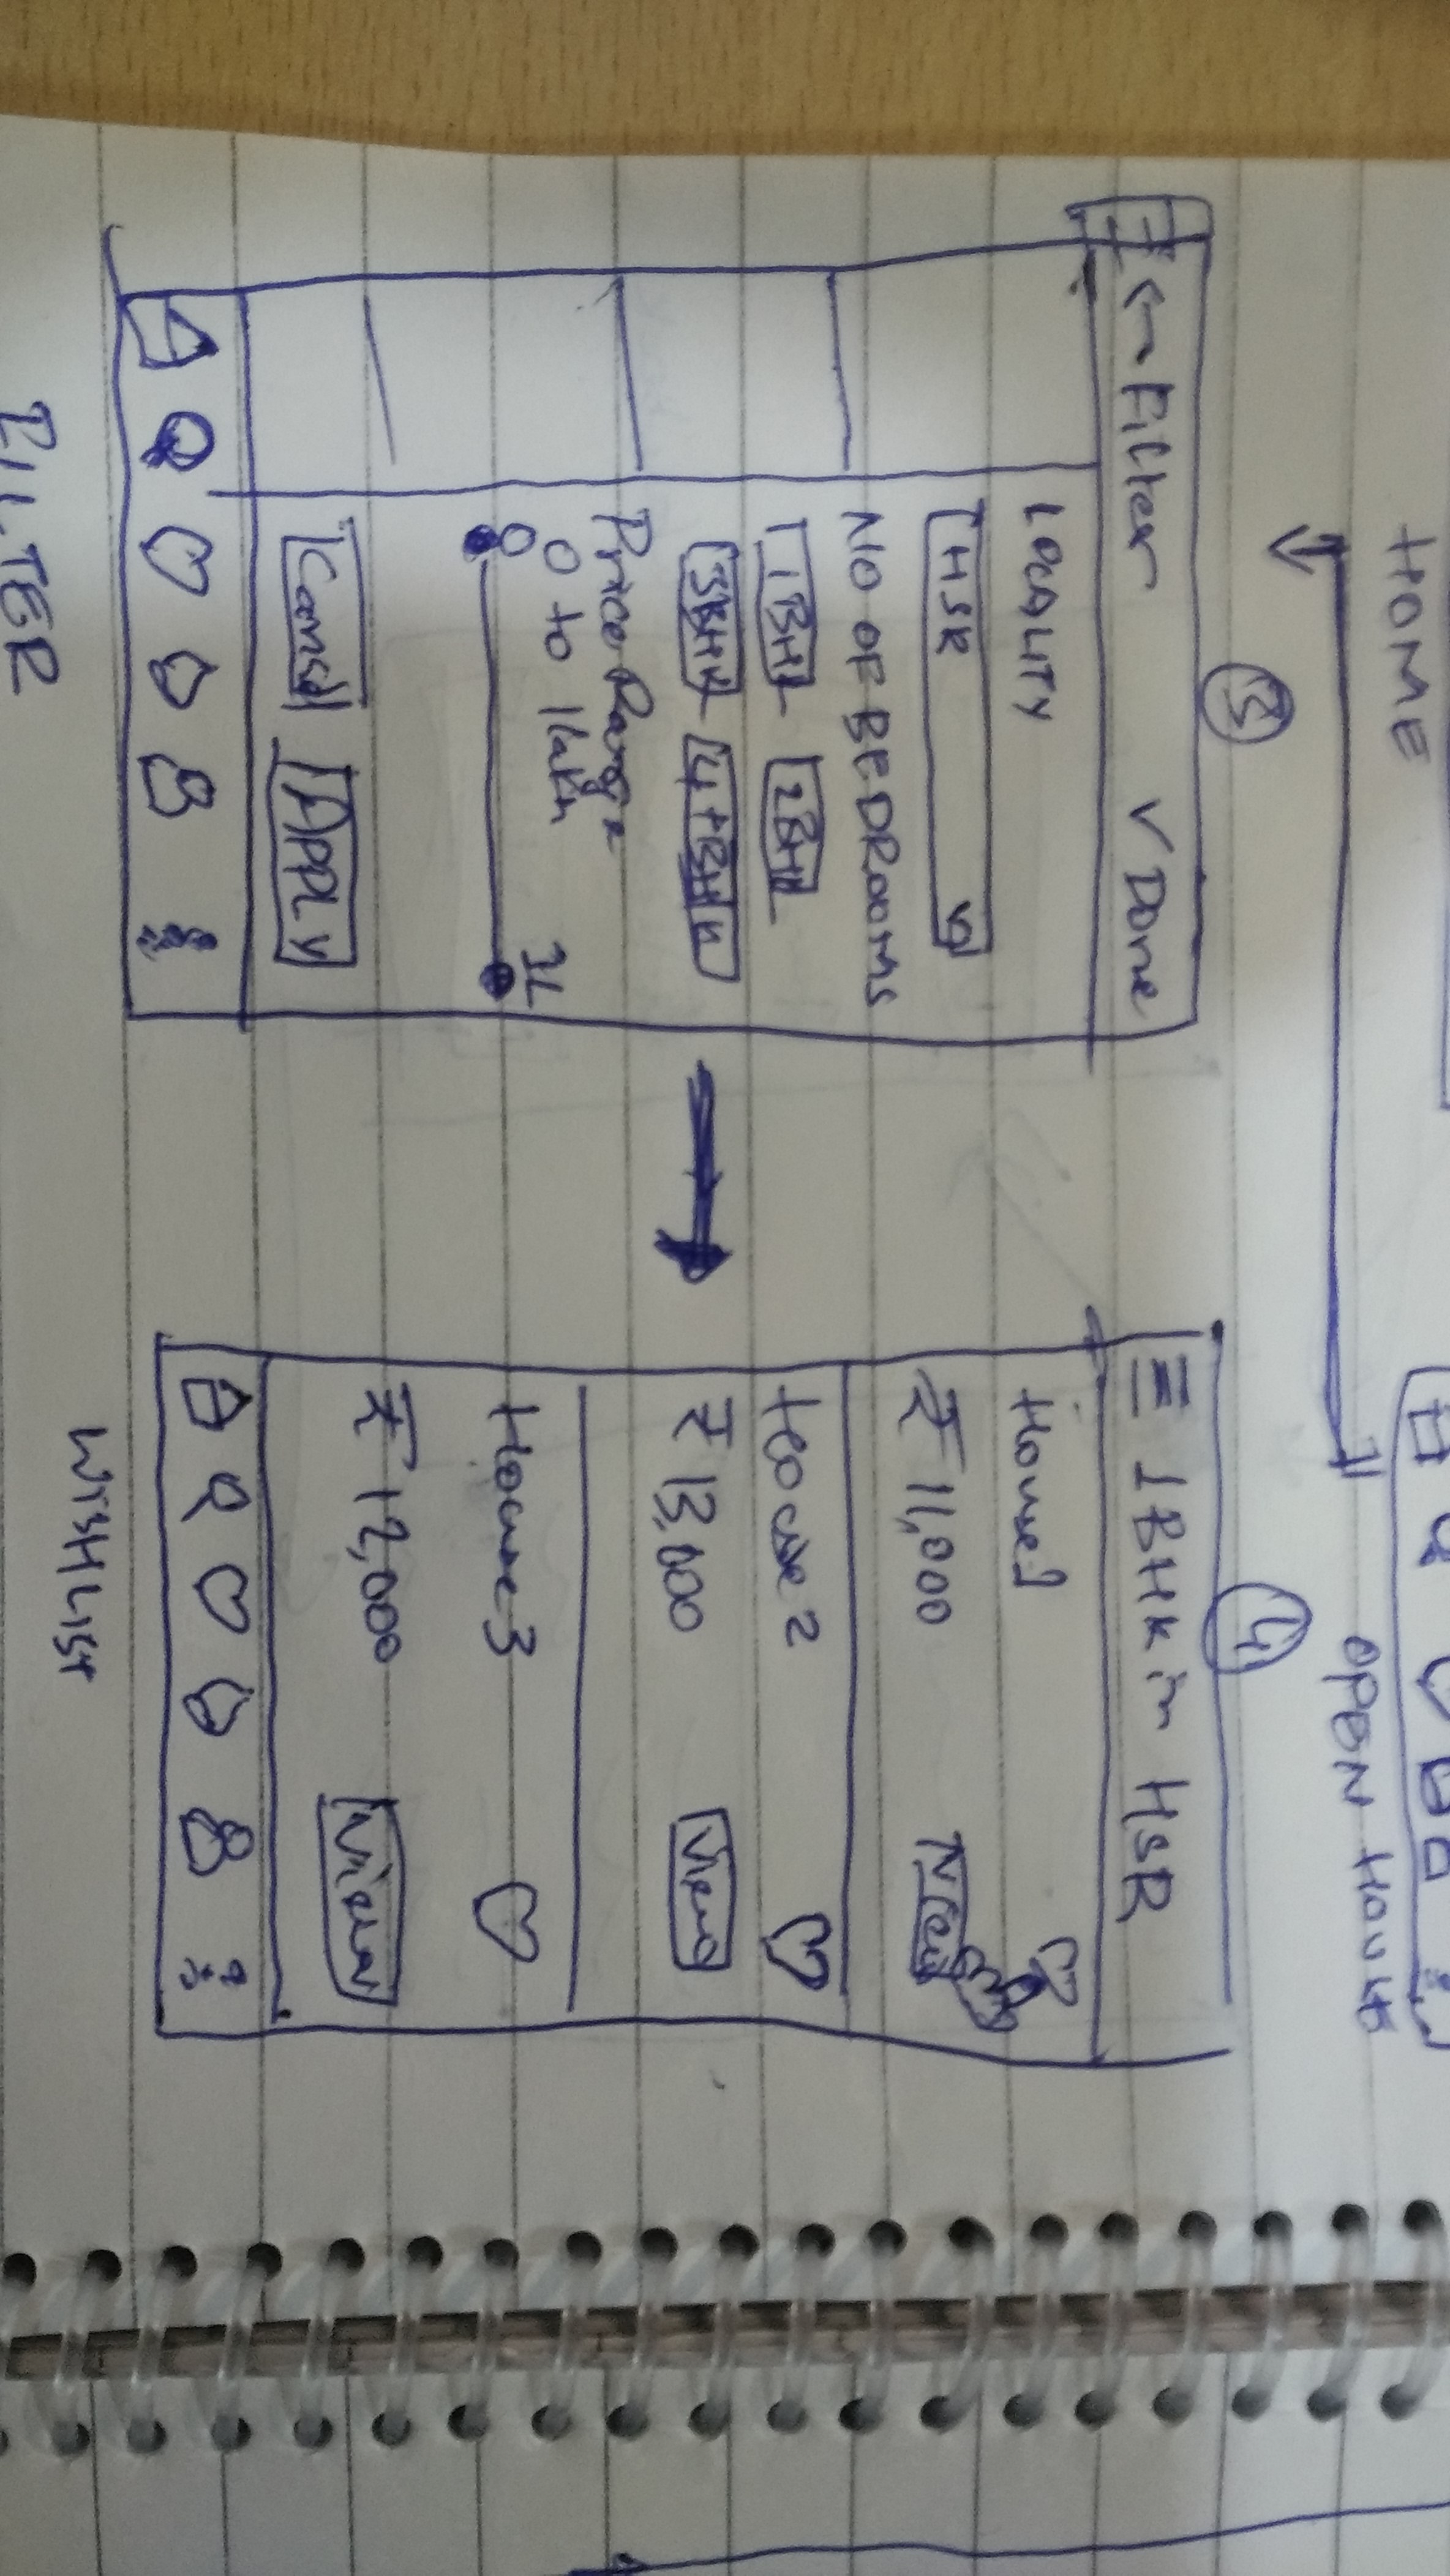 HOME
OPEN HOUSE
3
← Filter ✓ Done
LOCALITY
HSR
NO OF BEDROOMS
1BHK 2BHK
3BHK 4+BHK
Price Range
0 to 1 lakh
0 1L
Cancel APPLY
FILTER
4
≡ 1BHK in HSR
House 1
₹ 11,000 View
House 2
₹ 13,000 View
House 3
₹ 12,000 View
WISHLIST